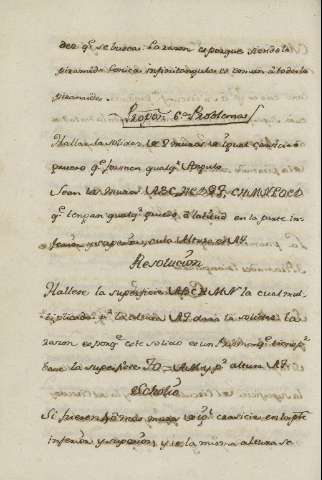 der q.e se busca: La razon es porque siendo la
piramide conica infinitangula es comun à todas la
piramides.
Propon. 6.a Problema
Hallar la solidez de 2 muros de igual crasicie ò
grueso q.e formen qualq.r Angulo
Sean los muros
q.e tengan qualq.r grueso ò latitud en la parte in-
ferior, y superior, cuia Altura es AF.
Resolucion
Hallese la superficie ABCHMN la cual mul-
tiplicada p.r la altura AF dara la solidez la
razon es porq.e este solido es un Prisma q.e tiene p.r
base la superficie y p.r altura AF.
Scholio
Si fueren mas muros de ig.l crasicie en la p.te
inferior y superior, y de la misma altura se